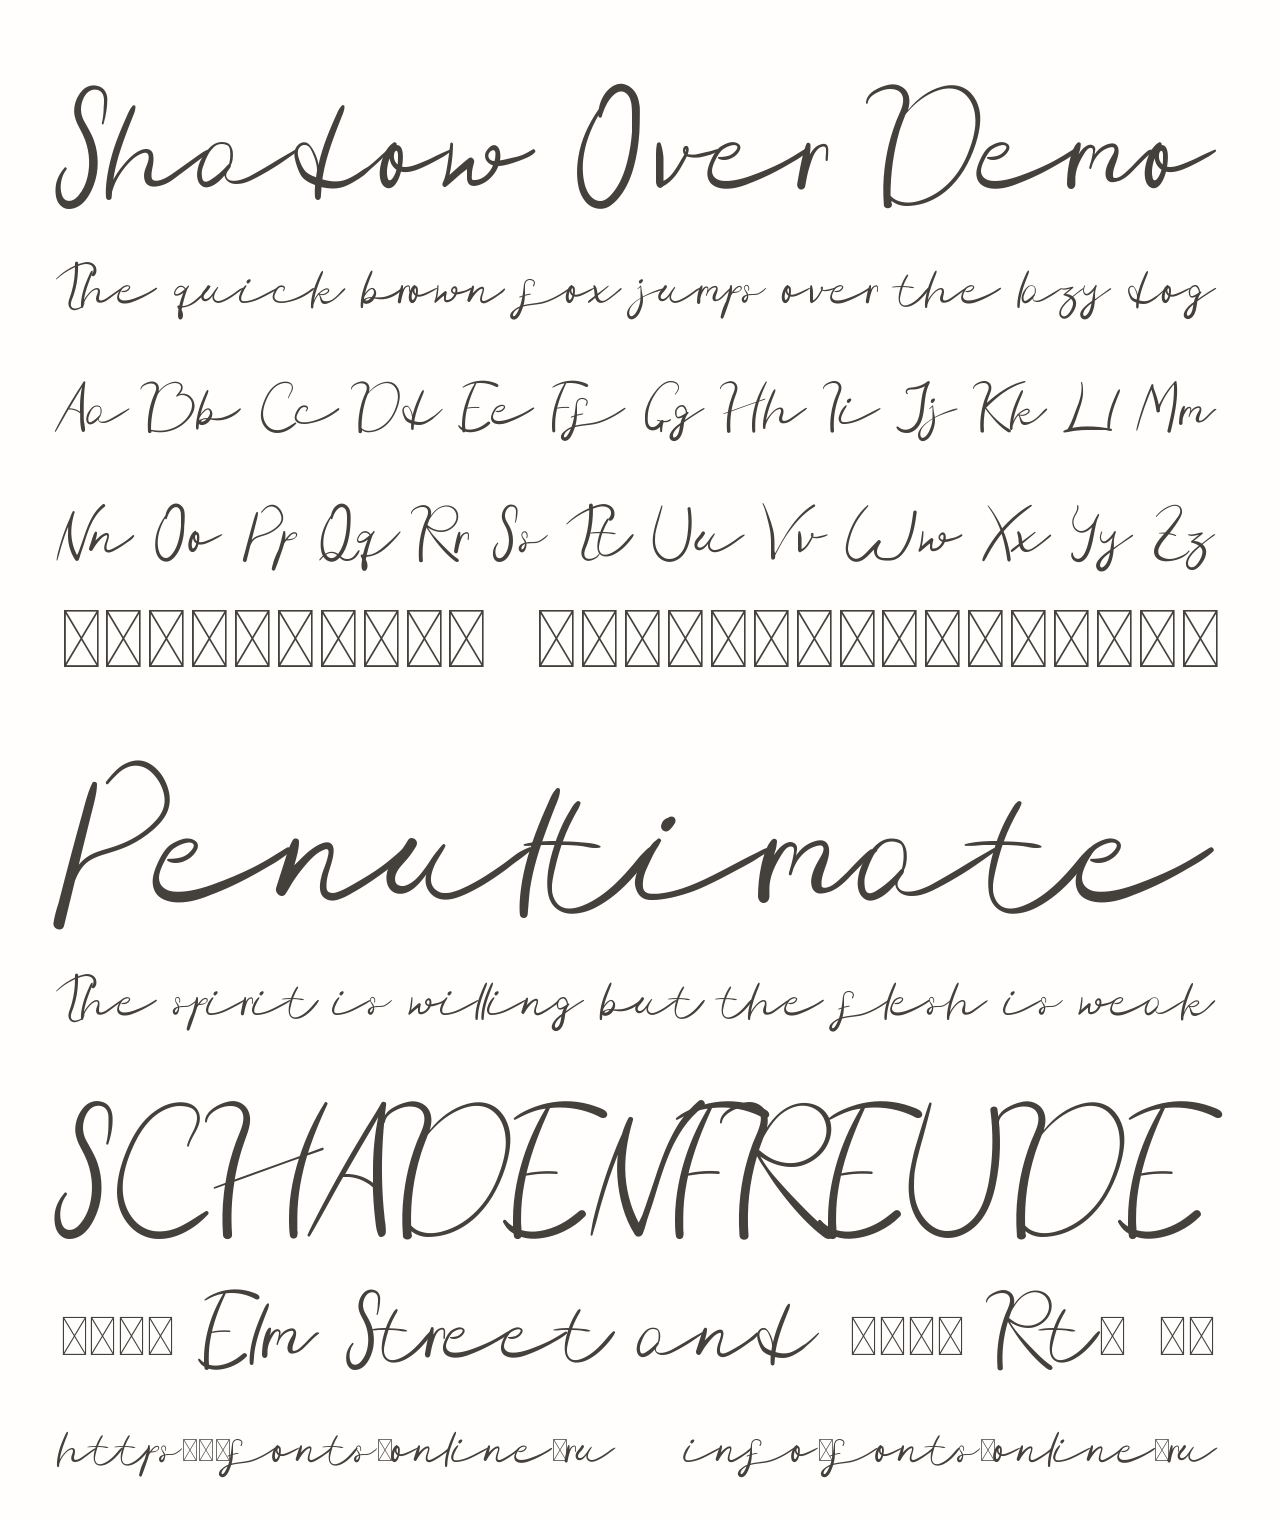 Shadow Over Demo
The quick brown fox jumps over the lazy dog
Aa Bb Cc Dd Ee Ff Gg Hh Ii Jj Kk Ll Mm
Nn Oo Pp Qq Rr Ss Tt Uu Vv Ww Xx Yy Zz
Penultimate
The spirit is willing but the flesh is weak
SCHADENFREUDE
Elm Street and Rt
https fonts online ru info fonts online ru